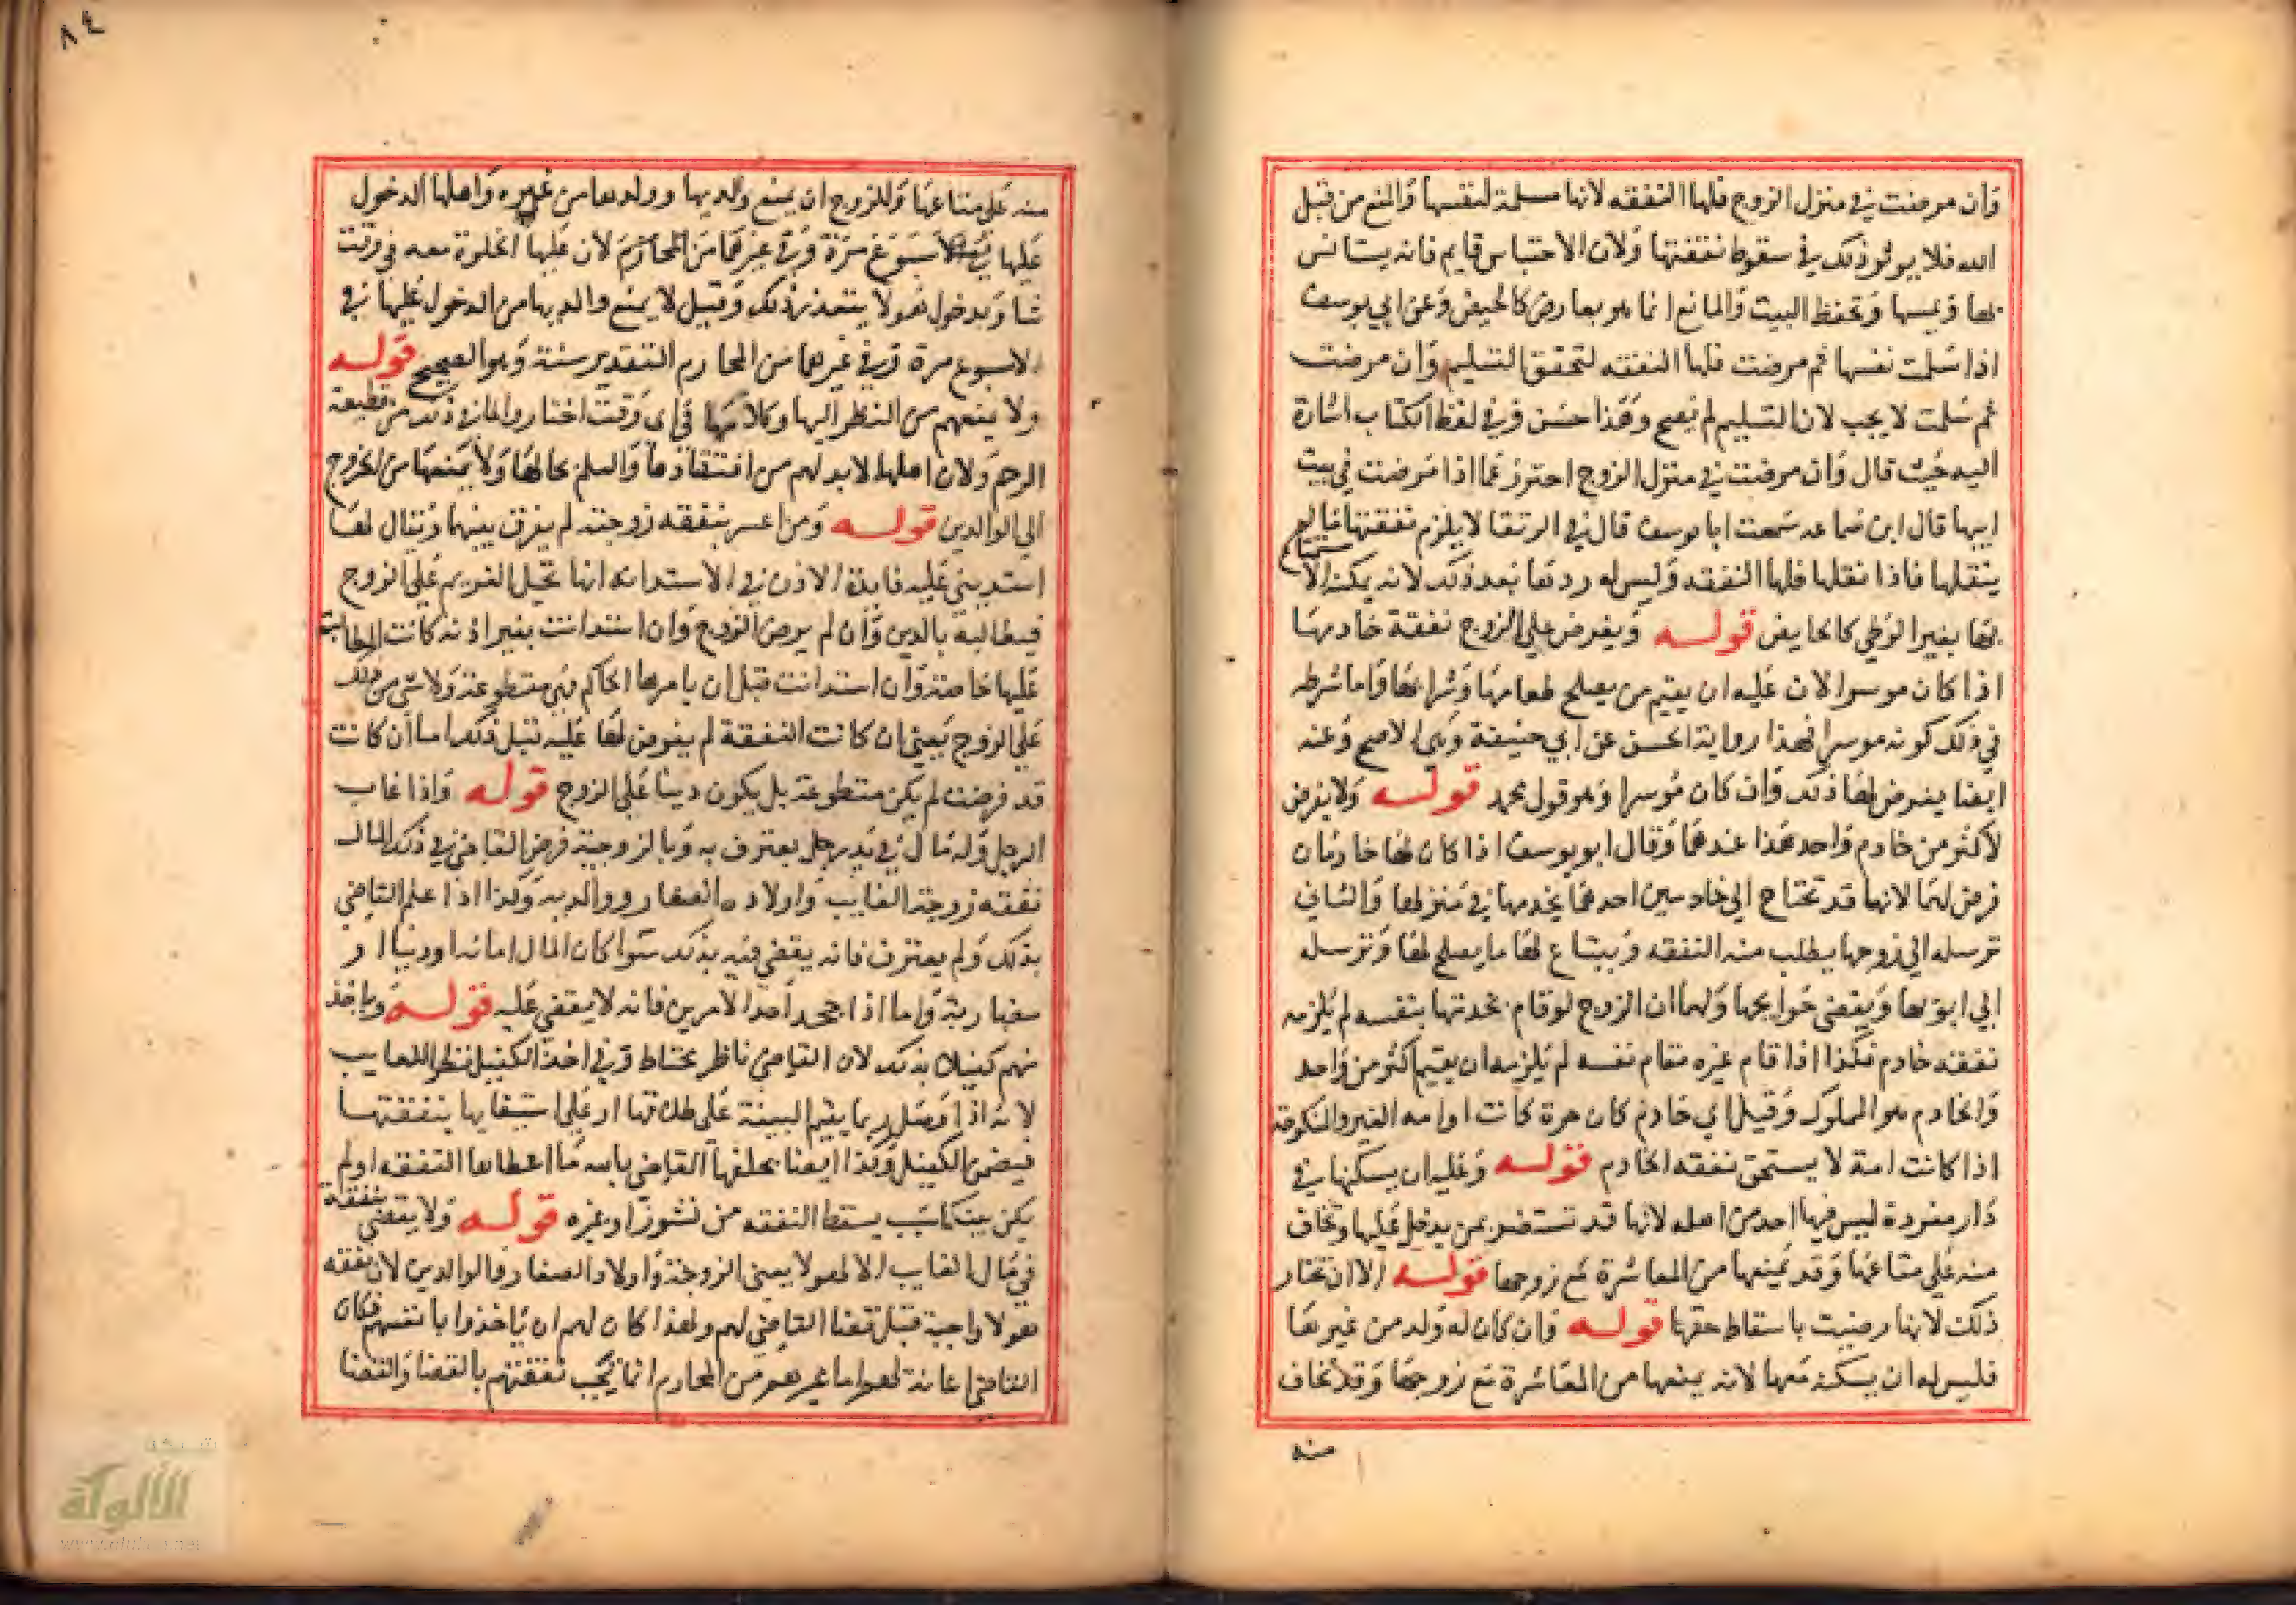 وان مرضت في منزل الزوج فلها النفقه لانها مسلمة لنفسها والمنع من قبل
الله فلا يوثر ذلك في سقوط نفقتها ولان الاحتباس قايم فانه يستانس
بها ويمسها وتحفظ البيت والمانع انما هو بعارض كالحيض وعن ابي يوسف
اذا سلمت نفسها ثم مرضت فلها النفقه لتحقق التسليم وان مرضت
ثم سلمت لا يجب لان التسليم لم يصح وهذا حسن وفي لفظ الكتاب اشارة
اليه حيث قال وان مرضت في منزل الزوج احترز عما اذا مرضت في بيت
ابيها قال ابن سماعه سمعت ابا يوسف قال في الرتقا لا يلزم نفقتها مالم
ينقلها فاذا نقلها فلها النفقه وليس له ردها بعد ذلك لانه يمكنه الاستمتاع
بها بغير الوطي كالحايض قوله ويفرض على الزوج نفقة خادمها
اذا كان موسرا لان عليه ان يقيم من يصلح طعامها وشرابها واما شرطه
في ذلك كونه موسرا فهذا رواية الحسن عن ابي حنيفة وهي الاصح وعنه
ايضا يفرض لها ذلك وان كان مؤسرا وهو قول محمد قوله ولا يفرض
لاكثر من خادم واحد هذا عندهما وقال ابو يوسف اذا كان لها خادمان
فرض لهما لانها قد تحتاج الى خادمين احدهما يخدمها في منزلها والثاني
ترسله الى زوجها يطلب منه النفقه ويبتاع لها ما يصلح لها وترسله
الى ابويها ويقضي حوايجها ولهما ان الزوج لو قام بخدمتها بنفسه لم يلزمه
نفقة خادم فكذا اذا قام غيره مقام نفسه لم يلزمه ان يقيم اكثر من واحد
والخادم هو المملوك وقيل اي خادم كان حرة كانت او امه الغير والمنكوحة
اذا كانت امة لا يستحق نفقه الخادم قوله وعليه ان يسكنها في
دار مفردة ليس فيها احد من اهله لانها قد تستضر بمن يدخل عليها وتخاف
منه على متاعها وقد يمنعها من المعاشرة مع زوجها قوله الا ان تختار
ذلك لانها رضيت باسقاط حقها قوله وان كان له ولد من غيرها
فليس له ان يسكنه معها لانه يمنعها من المعاشرة مع زوجها وقد تخاف
منه
٨٤
منه على متاعها وللزوج ان يمنع والديها وولدها من غيره واهلها الدخول
عليها في الاسبوع مرة وفي غيرهما من المحارم لان عليها الخلوة معه في وقت
شا وبدخول هولا يتعذر ذلك وقيل لا يمنع والديها من الدخول عليها في
الاسبوع مرة وفي غيرهما من المحارم التقدير سنة وهو الصحيح قوله
ولا يمنعهم من النظر اليها وكلامها في اي وقت اختاروا لما في ذلك من قطيعة
الرحم ولان اهلها لا بد لهم من افتقادها والعلم بحالها ولا يمنعها من الخروج
الى الوالدين قوله ومن اعسر بنفقه زوجته لم يفرق بينهما ويقال لها
استديني عليه فايدة الاذن في الاستدانه انها تحيل الغريم على الزوج
فيطالبه بالدين وان لم يرض الزوج وان استدانت بغير اذنه كانت المطالبة
عليها خاصة وان استدانت قبل ان يامرها الحاكم فهي متطوعة ولا شي من ذلك
على الزوج يعني ان كانت النفقة لم يفرض لها عليه قبل ذلك اما ان كانت
قد فرضت لم يكن متطوعة بل يكون دينا على الزوج قوله واذا غاب
الرجل وله مال في يد رجل يعترف به وبالزوجية فرض القاضي في ذلك المال
نفقه زوجة الغايب واولاده الصغار ووالديه وكذا اذا علم القاضي
بذلك ولم يعترف فانه يقضي فيه بذلك سوا كان المال امانه او دينا او
مضاربة واما اذا جحد احد الامرين فانه لا يقضي عليه قوله وياخذ
منهم كفيلا بذلك لان القاضي ناظر محتاط وفي اخذ الكفيل نظر للغايب
لانه اذا وصل ربما يقيم البينة على طلاقها او على استيفايها بنفقتها
فيضمن الكفيل وكذا ايضا يحلفها القاضي بالله ما اعطاها النفقه ولم
يكن بينكما سبب يسقط النفقه من نشوز او غيره قوله ولا يقضي بنفقة
في مال الغايب الا لهولا يعني الزوجة واولاد الصغار والوالدين لان نفقه
هولا واجبة قبل قضا القاضي لهم ولهذا كان لهم ان ياخذوا بانفسهم فكان
القاضي اعانة لهم واما غيرهم من المحارم انما يجب نفقتهم بالقضا والقضا
شبكة
الألوكة
www.alukah.net